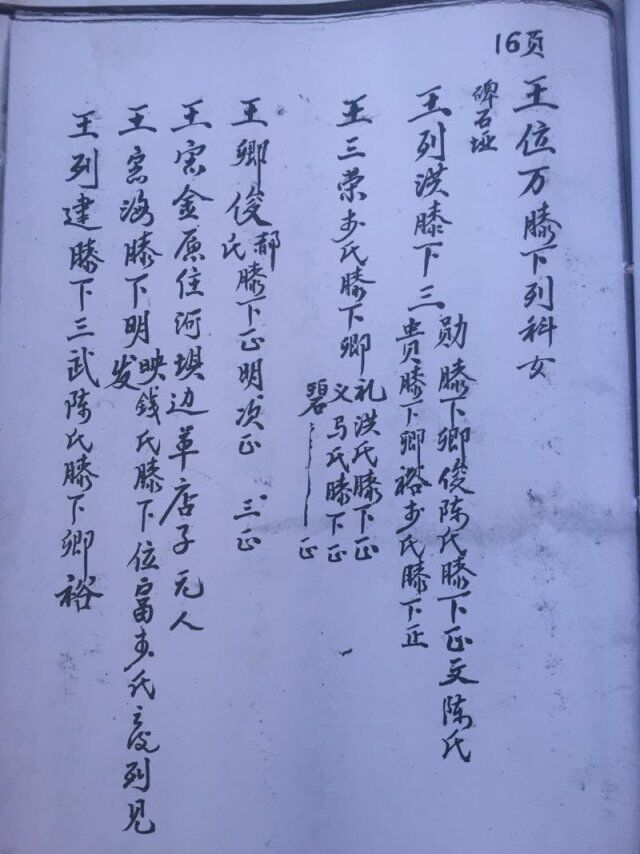 16页
王位万膝下列科女
碑石垭
王列洪膝下三
勋膝下卿俊陈氏膝下正文陈氏
贵膝下卿裕李氏膝下正
王三荣李氏膝下卿
礼洪氏膝下正
义马氏膝下正
碧 正
王卿俊郝氏膝下正明次正 三正
王宗金原住河坝边草店子无人
王宗海膝下明
映钱氏膝下位富李氏 列见
发
王列建膝下三武陈氏膝下卿裕